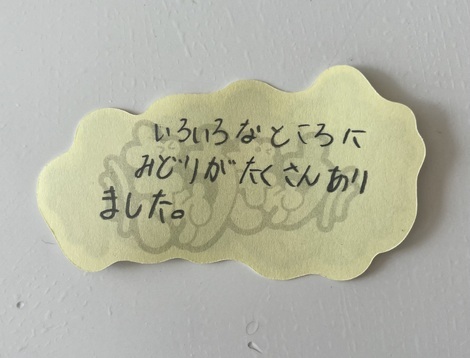 いろいろなところに
みどりがたくさんあり
ました。